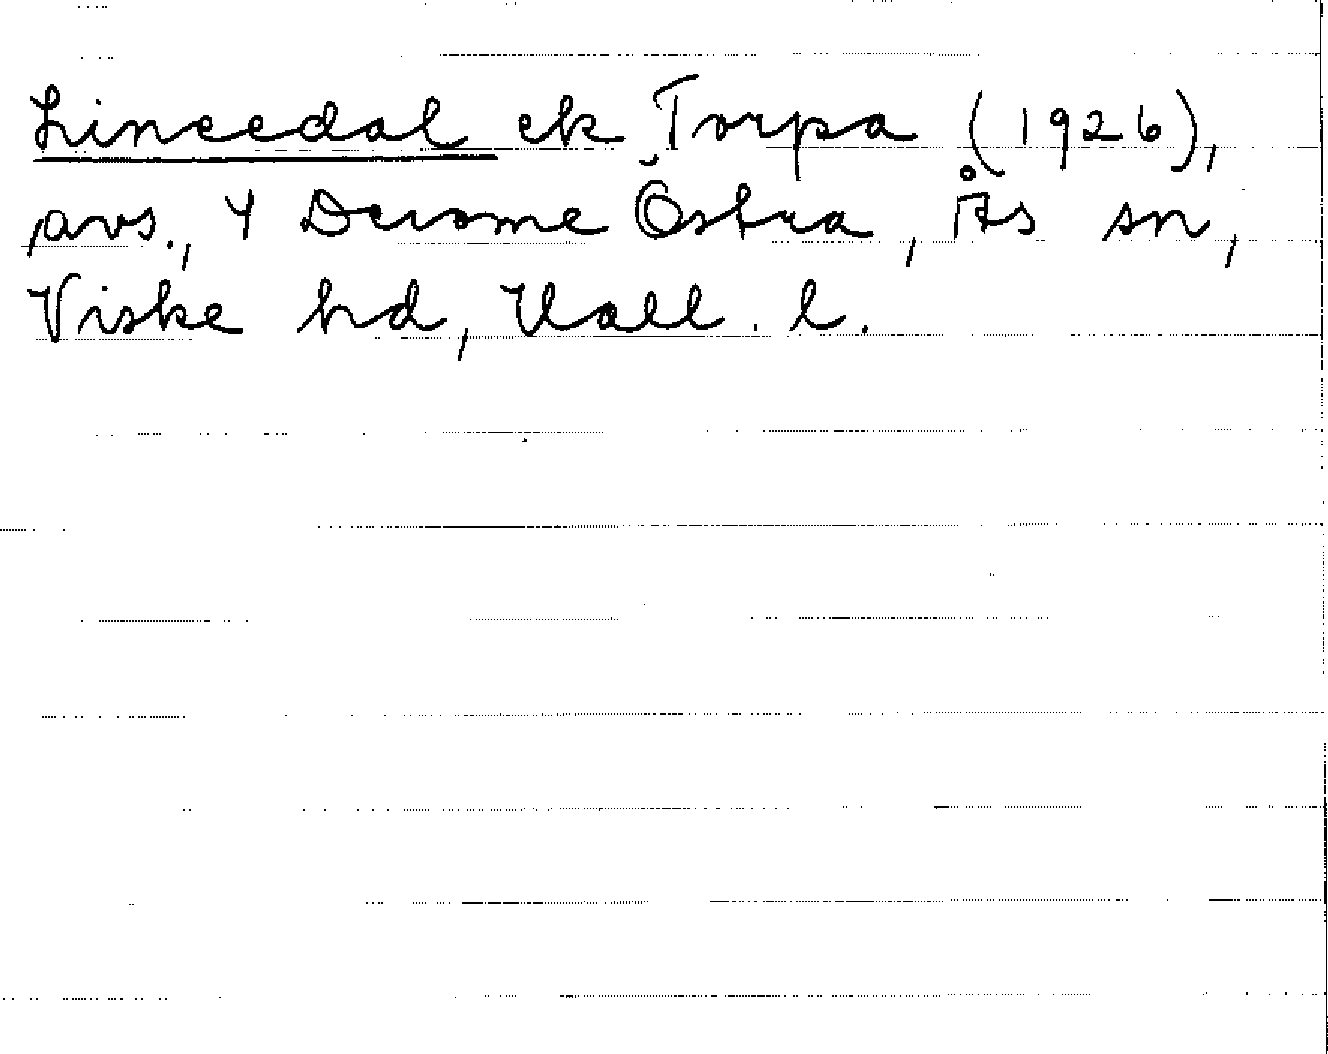 Lineedal ek Torpa (1926),
avs., 4 Derome Östra, Ås sn,
Viske hd, Hall. l.